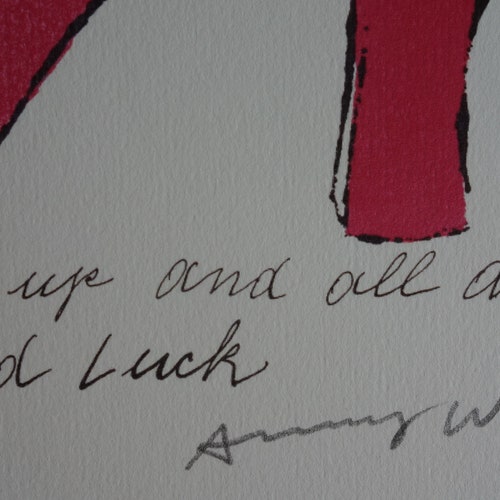 up and all a
d Luck
Andy W